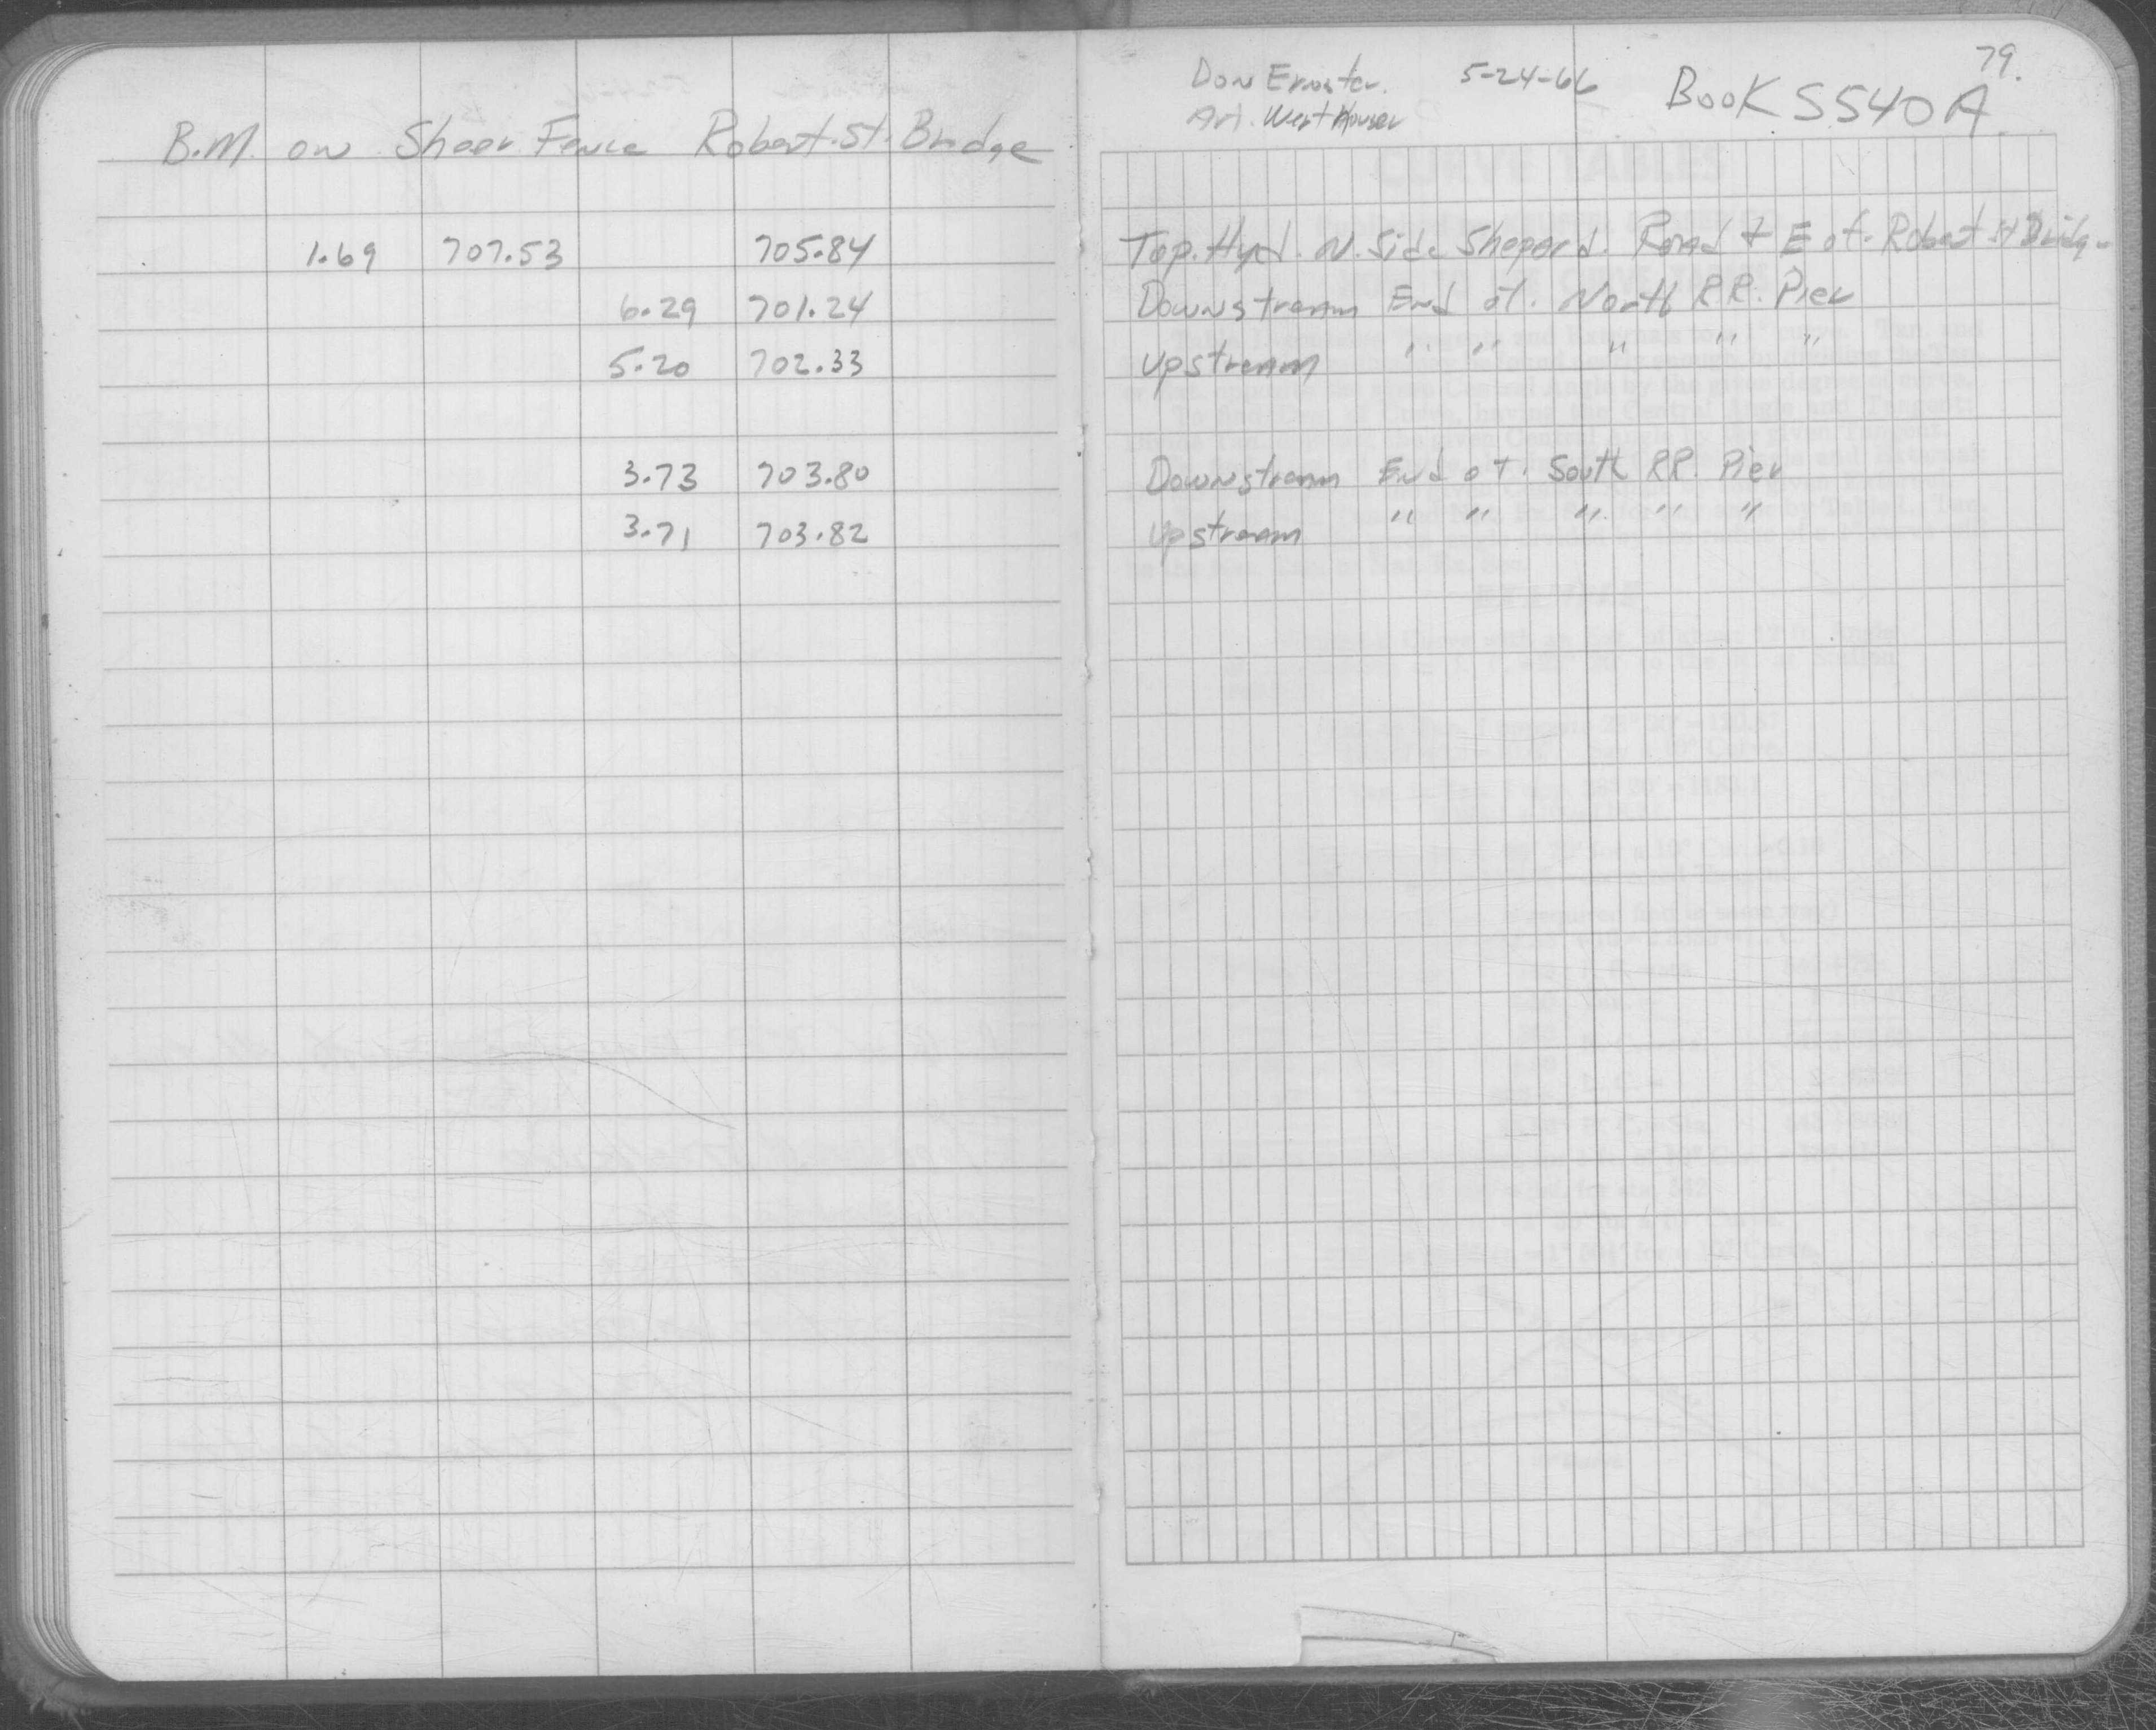 B.M. on Sheer Fence Robert. St. Bridge
1.69 707.53 705.84
6.29 701.24
5.20 702.33
3.73 703.80
3.71 703.82
79.
Don Ernster. 5-24-66 Book S540A.
Art. West Houser
Top. Hyd. N. Side Shepard. Road & E of. Robert St Bridge
Downstream End of. North R.R. Pier
Upstream " " " " "
Downstream End of. South RR. Pier
Upstream " " " " "